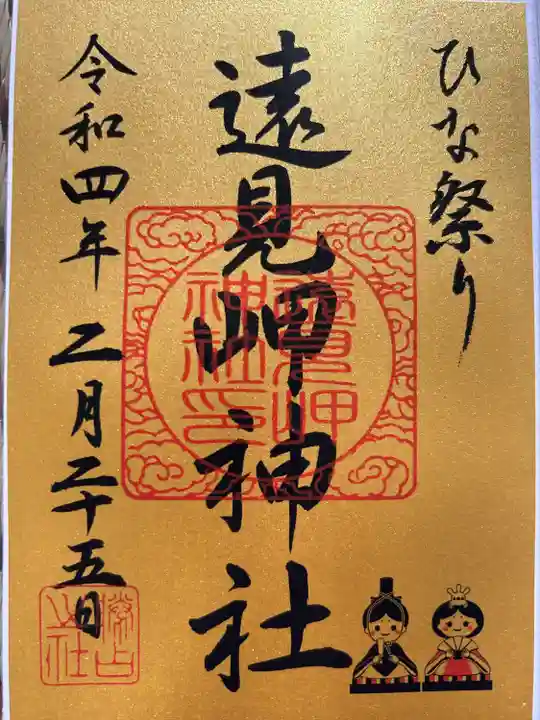 ひな祭り
遠見岬神社
遠見岬
神社印
令和四年二月二十五日